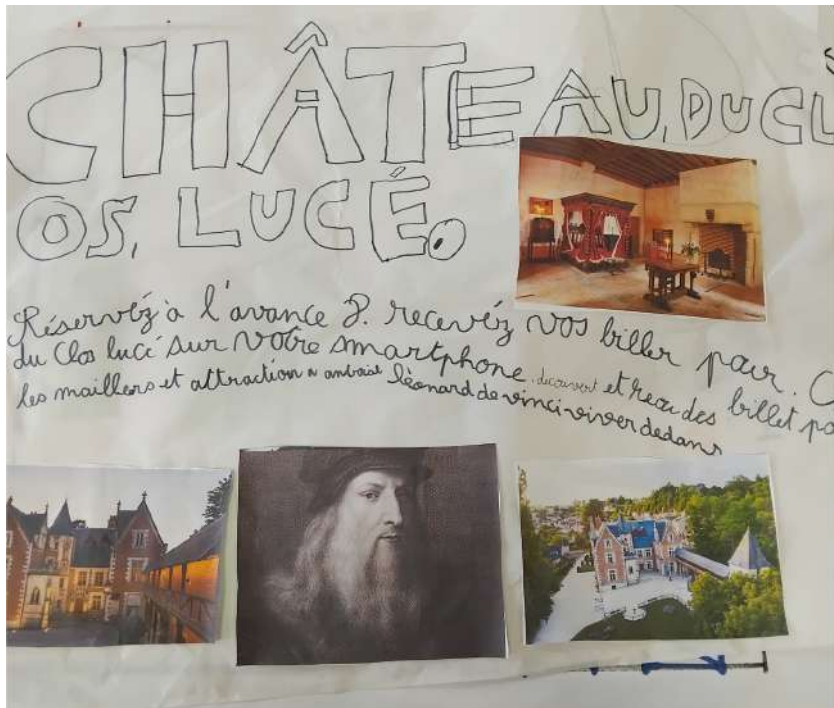 CHÂTEAU, DU CL
OS, LUCÉ.
Réservéz à l'avance &. recevéz vos biller pour. C
du Clos lucé sur votre smartphone. decouvert et reçu des billet po
les maillers et attraction a ambaise léonard de vinci viver dedans